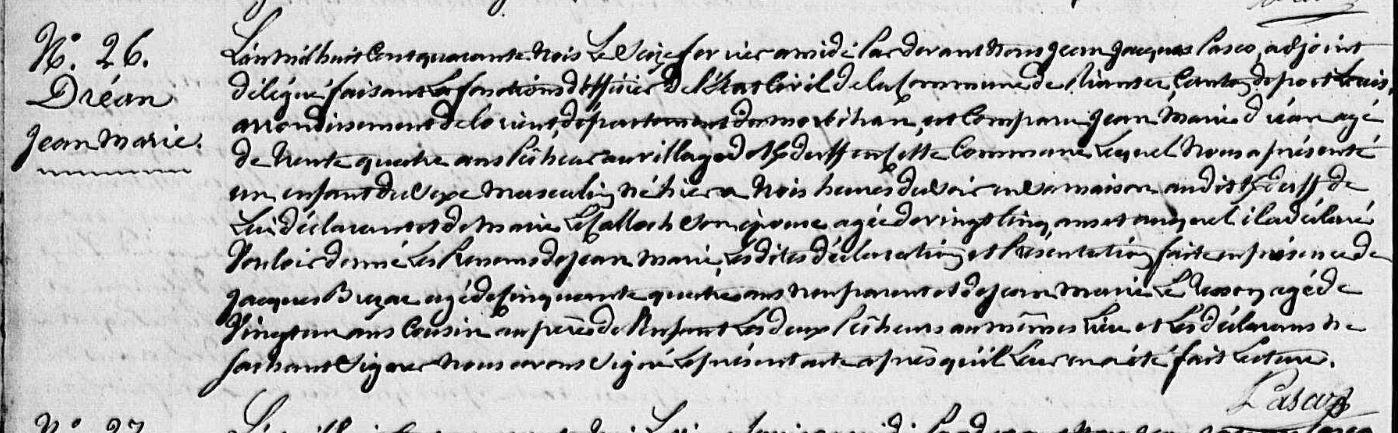 N.° 26.
Dréan
Jean Marie.
L'an mil huit cent quarante trois Le Seize fevrier a midi Par devant Nous Jean Jacques Pasco, adjoint
délégué faisant les fonctions d'officier de l'état Civil de la Commune de Riantec, Canton de port Louis,
arrondissement de Lorient, département du morbihan, est Comparu Jean Marie Dréan agé
de trente quatre ans Pêcheur au village de en Cette Commune Lequel Nous a présenté
un enfant du Sexe masculin né hier a trois heures du soir en sa maison audit de
Lui déclarant et de Marie Le Calloch son épouse agée de vingt Cinq ans et auquel il a déclaré
Vouloir donné Les Prenoms de Jean Marie, Les dites déclaration et Présentation faite en présence de
Jacques agé de Cinquante quatre ans non parent et de Jean Marie Le agé de
Vingt un ans Cousin au père de l'enfant Les deux Pêcheurs au mêmes Lieu et Les déclarans ne
sachant Signer Nous avons Signé Le présent acte après qu'il Leur en a été fait Lecture.
Pasco
N.° 27